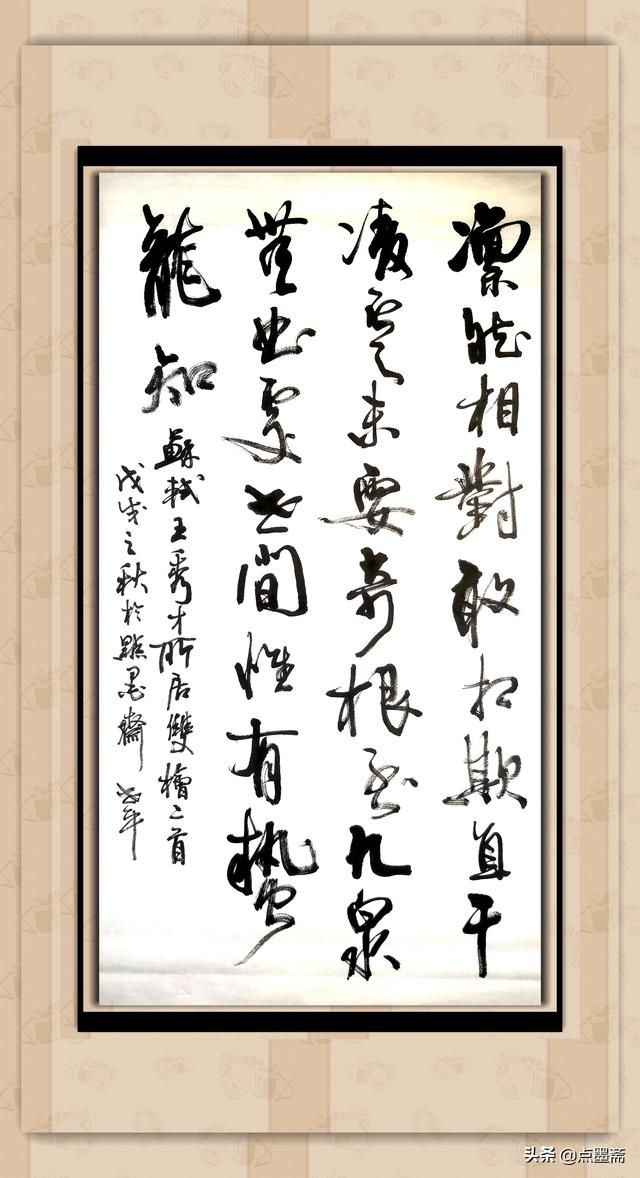 凜然相對敢相欺直干
凌雲未要奇根到九泉
無曲處世間惟有蟄
龍知
蘇軾王秀才所居雙檜二首
戊戌之秋於點墨齋
头条 @点墨斋